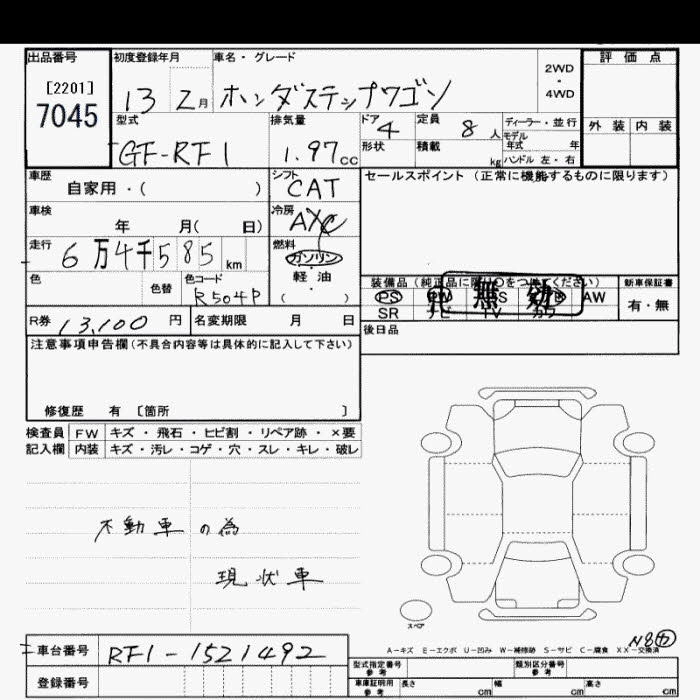 出品番号 初度登録年月 車名・グレード 評価点
[2201] 7045 13 2月 ホンダステップワゴン 2WD・4WD
型式 排気量 ドア 定員 ディーラー・並行 外装 内装
GF-RF1 1.97cc 4 8人 モデル年式 年
形状 積載 kg ハンドル 左・右
車歴 シフト セールスポイント (正常に機能するものに限ります)
自家用・( ) CAT
車検 冷房
年 月( 日) A/C
走行 燃料
6万4千585km ガソリン
色 色替 色コード 軽油 装備品 (純正品に限り○をつけてください) 新車保証書
R504P ( ) PS PW 無効 AW 有・無
SR ナビ TV カワ
R券 13,100円 名変期限 月 日 後日品
注意事項申告欄(不具合内容等は具体的に記入して下さい)
修復歴 有 [箇所 ]
検査員 FW キズ・飛石・ヒビ割・リペア跡・×要
記入欄 内装 キズ・汚レ・コゲ・穴・スレ・キレ・破レ
不動車の為
現状車
スペア
A-キズ E-エクボ U-凹み W-補修跡 S-サビ C-腐食 XX-交換済
車台番号 RF1-1521492
型式指定番号 参考 類別区分番号 参考
登録番号 車庫証明用 参考 長さ cm 幅 cm 高さ cm